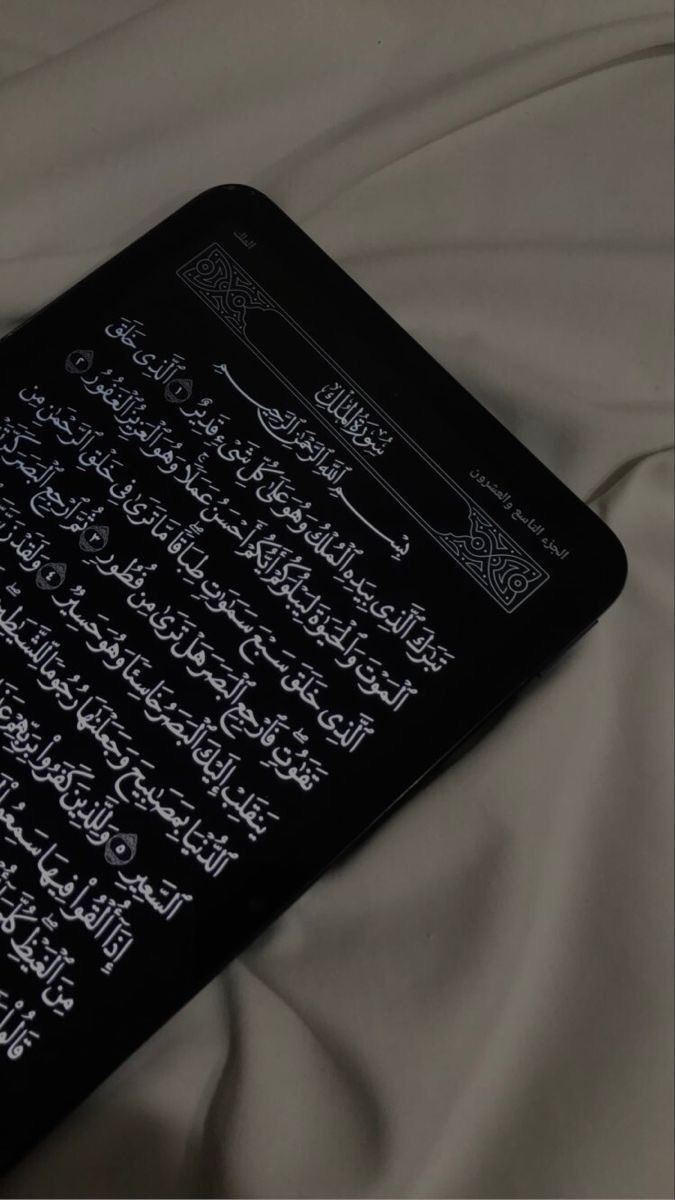 الملك
الجزء التاسع و العشرون
سُورَةُ المُلْكِ
بِسْمِ ٱللَّهِ ٱلرَّحْمَٰنِ ٱلرَّحِيمِ
تَبَٰرَكَ ٱلَّذِى بِيَدِهِ ٱلْمُلْكُ وَهُوَ عَلَىٰ كُلِّ شَىْءٍ قَدِيرٌ ١ ٱلَّذِى خَلَقَ
ٱلْمَوْتَ وَٱلْحَيَوٰةَ لِيَبْلُوَكُمْ أَيُّكُمْ أَحْسَنُ عَمَلًا ۚ وَهُوَ ٱلْعَزِيزُ ٱلْغَفُورُ ٢
ٱلَّذِى خَلَقَ سَبْعَ سَمَٰوَٰتٍ طِبَاقًا ۖ مَّا تَرَىٰ فِى خَلْقِ ٱلرَّحْمَٰنِ مِن
تَفَٰوُتٍ ۖ فَٱرْجِعِ ٱلْبَصَرَ هَلْ تَرَىٰ مِن فُطُورٍ ٣ ثُمَّ ٱرْجِعِ ٱلْبَصَرَ
يَنقَلِبْ إِلَيْكَ ٱلْبَصَرُ خَاسِئًا وَهُوَ حَسِيرٌ ٤ وَلَقَدْ
ٱلدُّنْيَا بِمَصَٰبِيحَ وَجَعَلْنَٰهَا رُجُومًا لِّلشَّيَٰطِينِ ۖ
ٱلسَّعِيرِ ٥ وَلِلَّذِينَ كَفَرُوا۟ بِرَبِّهِمْ
إِذَآ أُلْقُوا۟ فِيهَا سَمِعُوا۟
مِنَ ٱلْغَيْظِ ۖ
قَالُوا۟